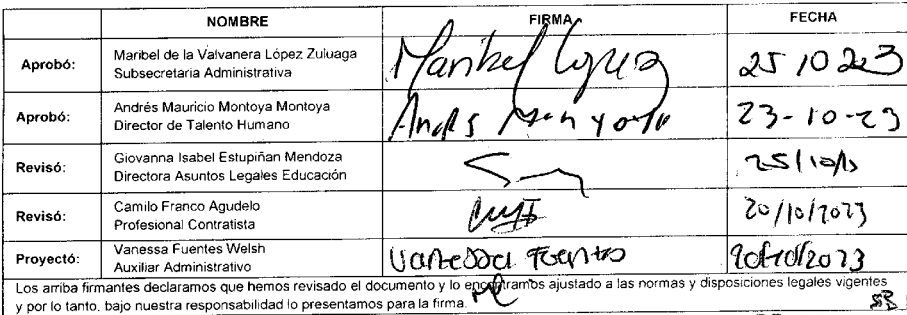 NOMBRE FIRMA FECHA
Aprobó: Maribel de la Valvanera López Zuluaga
Subsecretaria Administrativa
Maribel López 25 10 2023
Aprobó: Andrés Mauricio Montoya Montoya
Director de Talento Humano
Andrés Montoya 23-10-23
Revisó: Giovanna Isabel Estupiñan Mendoza
Directora Asuntos Legales Educación
Revisó: Camilo Franco Agudelo
Profesional Contratista
20/10/2023
Proyectó: Vanessa Fuentes Welsh
Auxiliar Administrativo
Vanessa Fuentes 20/10/2023
Los arriba firmantes declaramos que hemos revisado el documento y lo encontramos ajustado a las normas y disposiciones legales vigentes
y por lo tanto, bajo nuestra responsabilidad lo presentamos para la firma.